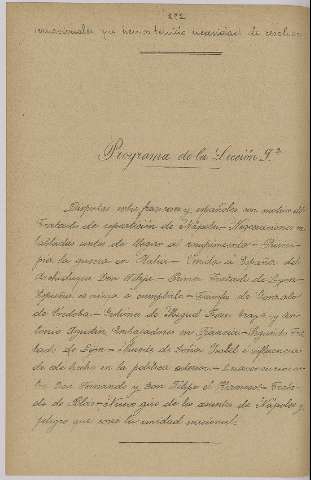 272
excepcionales que hemos tenido necesidad de resolver
Programa de la Lección 9ª
Disputas entre franceses y españoles con motivo del
Tratado de repartición de Nápoles - Negociaciones en
tabladas antes de llegar a rompimiento - Princi
pia la guerra en Italia - Venida a España del
Archiduque Don Felipe - Primer Tratado de Lyon -
España se niega a cumplirlo - Triunfos de Gonzalo
de Córdoba - Gestiones de Miguel Juan Gralla y An
tonio Agustín Embajadores en Francia - Segundo Tra
tado de Lyon - Muerte de Doña Isabel é influencia
de este hecho en la política exterior -
entre Don Fernando y Don Felipe el Hermoso - Trata
do de Blois - Nuevo giro de los asuntos de Nápoles y
peligro que corre la unidad nacional.